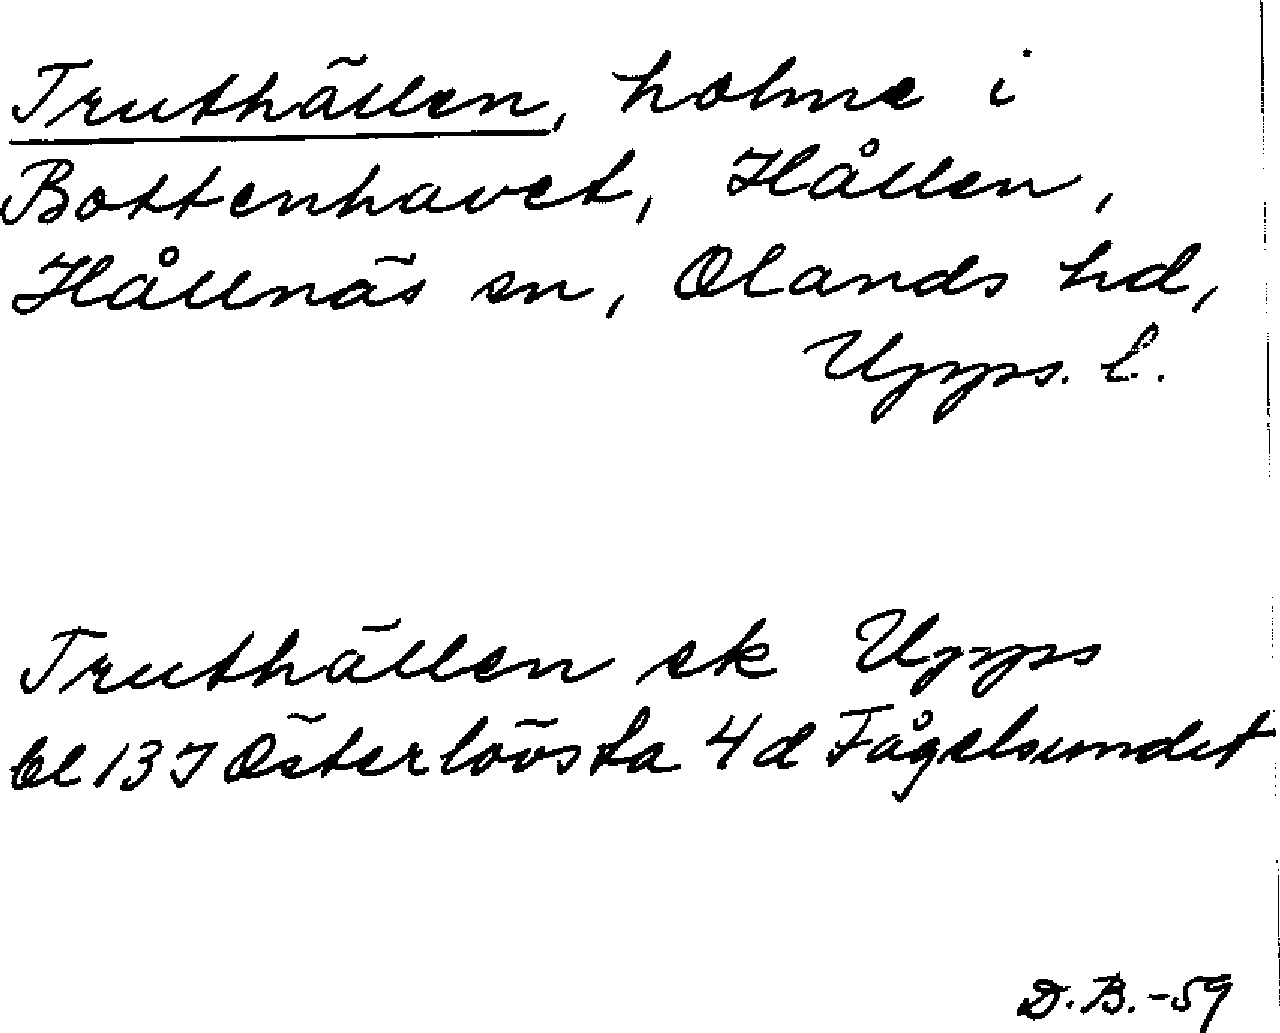 Truthällen, holme i
Bottenhavet, Hållen,
Hållnäs sn, Olands hd,
Upps. l.
Truthällen ek Upps
bl 13 I Österlövsta 4 d Fågelsundet
D.B.-59